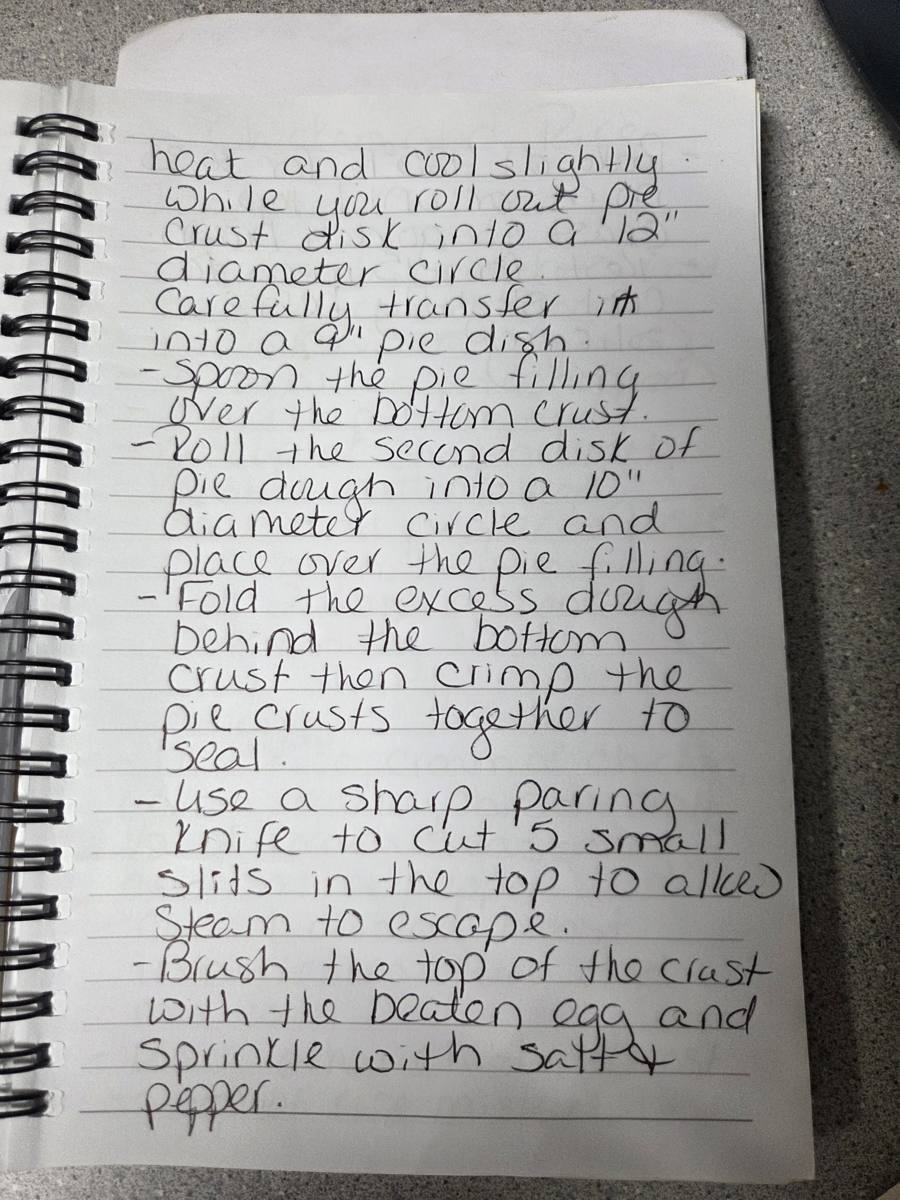 heat and cool slightly.
while you roll out pie
crust disk into a 12"
diameter circle.
Carefully transfer it
into a 9" pie dish.
- Spoon the pie filling
over the bottom crust.
- Roll the second disk of
pie dough into a 10"
diameter circle and
place over the pie filling.
- Fold the excess dough
behind the bottom
crust then crimp the
pie crusts together to
seal.
- Use a sharp paring
knife to cut 5 small
slits in the top to allow
steam to escape.
- Brush the top of the crust
with the beaten egg and
sprinkle with salt &
pepper.